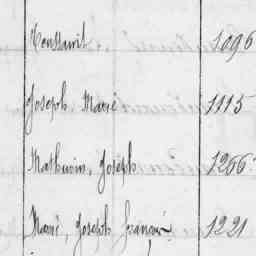 Toussaint, 1096
Joseph Marie 1115
Mathurin, Joseph 1266
Marie, Joseph François 1221